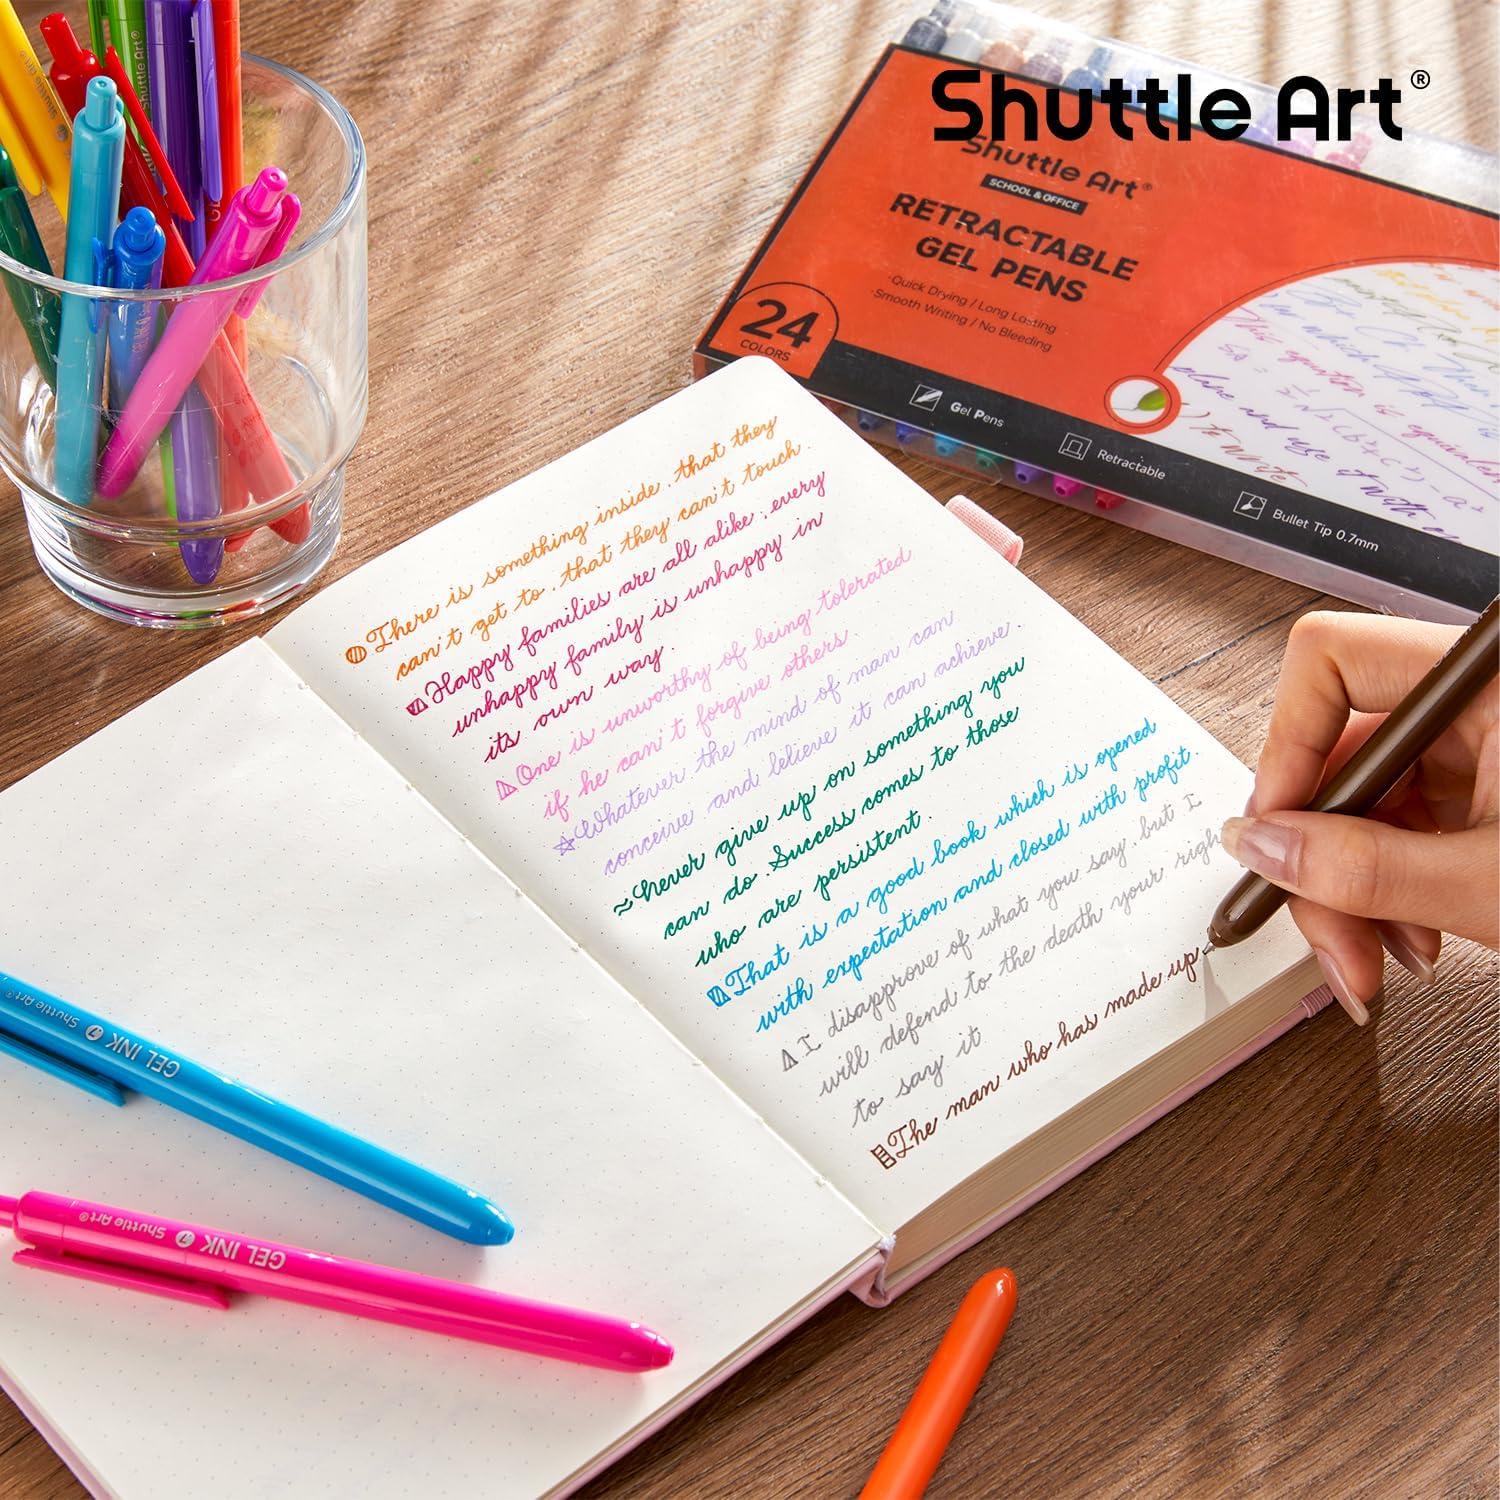 Shuttle Art®
Shuttle Art®
SCHOOL & OFFICE
RETRACTABLE
GEL PENS
·Quick Drying / Long Lasting
·Smooth Writing / No Bleeding
24
COLORS
Gel Pens
Retractable
Bullet Tip 0.7mm
This equation is equivalent
plane and use it with
to write
Shuttle Art®
Shuttle Art®
There is something inside. that they
can't get to. that they can't touch.
Happy families are all alike; every
unhappy family is unhappy in
its own way.
One is unworthy of being tolerated
if he can't forgive others.
Whatever the mind of man can
conceive and believe it can achieve.
Never give up on something you
can do. Success comes to those
who are persistent.
That is a good book which is opened
with expectation and closed with profit.
I disapprove of what you say. but I
will defend to the death your righ
to say it
The man who has made up
GEL INK .7 Shuttle Art®
GEL INK .7 Shuttle Art®